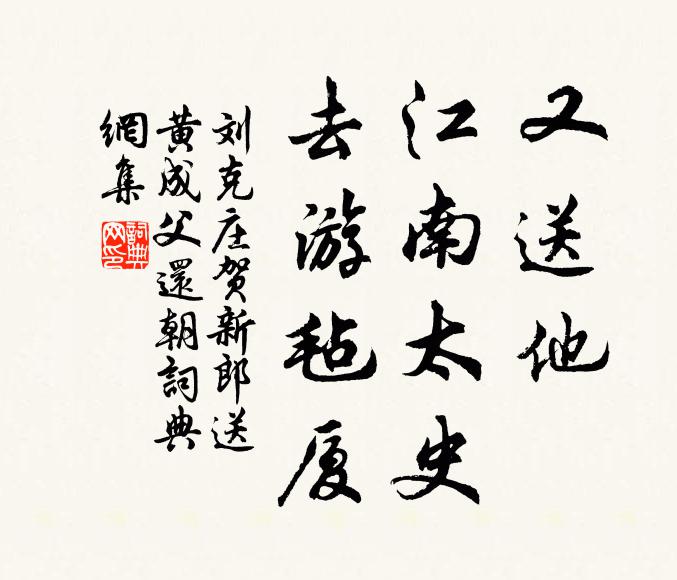 又送他
江南太史
去游毡厦
刘克庄贺新郎送
黄成父還朝詞典
網集
詞典
网印